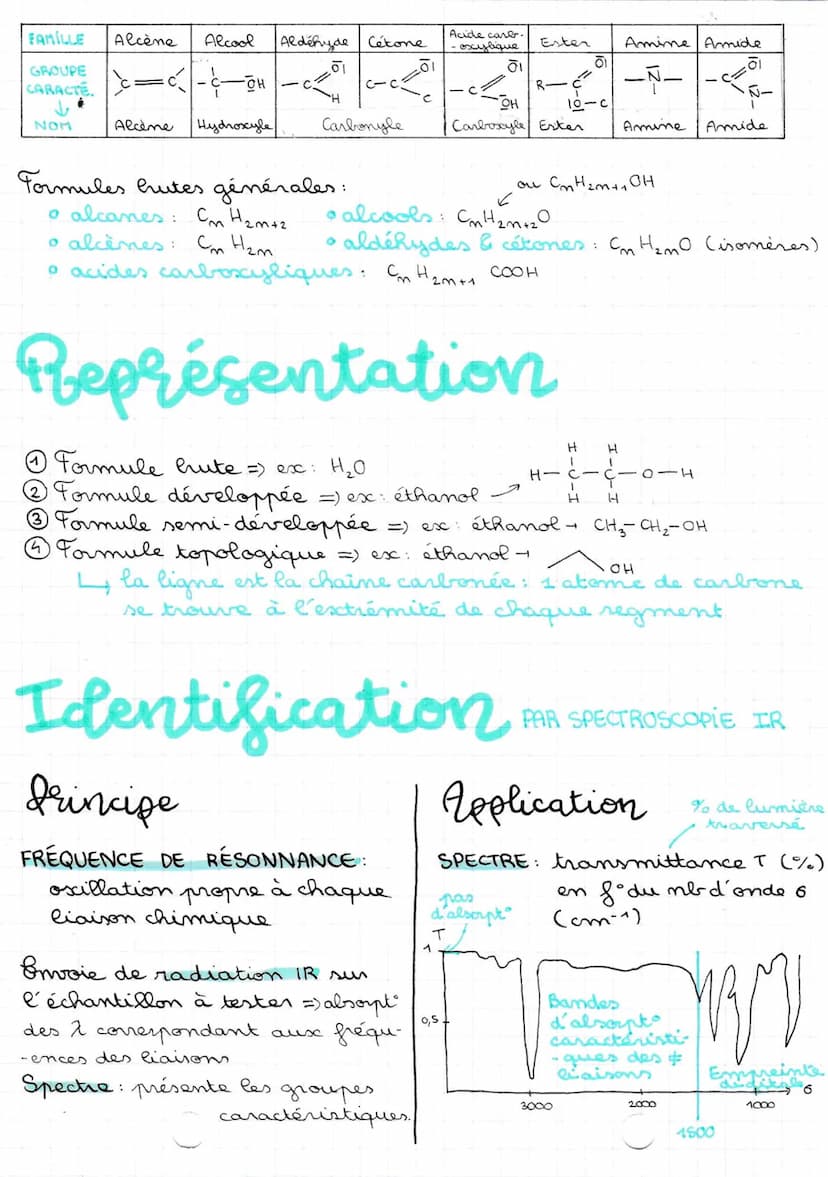 FAMILLE Alcène Alcool Aldéhyde Cétone Acide carb-oxylique Ester Amine Amide
GROUPE CARACTÉ. ↓ NOM
C=C
-C-OH
-C O H
C-C O C
-C O OH
R-C O O-C
-N-
-C O N-
Alcène Hydroxyle Carbonyle Carboxyle Ester Amine Amide
Formules brutes générales :
ou CnH2n+1OH
• alcanes : CnH2n+2 • alcools : CnH2n+2O
• alcènes : CnH2n • aldéhydes & cétones : CnH2nO (isomères)
• acides carboxyliques : CnH2n+1 COOH
Représentation
① Formule brute => ex : H2O
② Formule développée => ex : éthanol
H H
H-C-C-O-H
H H
③ Formule semi-développée => ex : éthanol → CH3-CH2-OH
④ Formule topologique => ex : éthanol → OH
↳ la ligne est la chaîne carbonée : 1 atome de carbone
se trouve à l'extrémité de chaque segment
Identification PAR SPECTROSCOPIE IR
Principe
FRÉQUENCE DE RÉSONNANCE :
oscillation propre à chaque
liaison chimique
Envoie de radiation IR sur
l'échantillon à tester => absorpt°
des λ correspondant aux fréqu-
-ences des liaisons
Spectre : présente les groupes
caractéristiques.
Application
% de lumière
traversé
SPECTRE : transmittance T (%)
en f° du nb d'onde σ
(cm-1)
pas
d'absorpt°
T
1
0,5
Bandes
d'absorpt°
caractéristi-
-ques des ≠
liaisons
Empreinte
digitale
σ
3000 2000 1000
1500